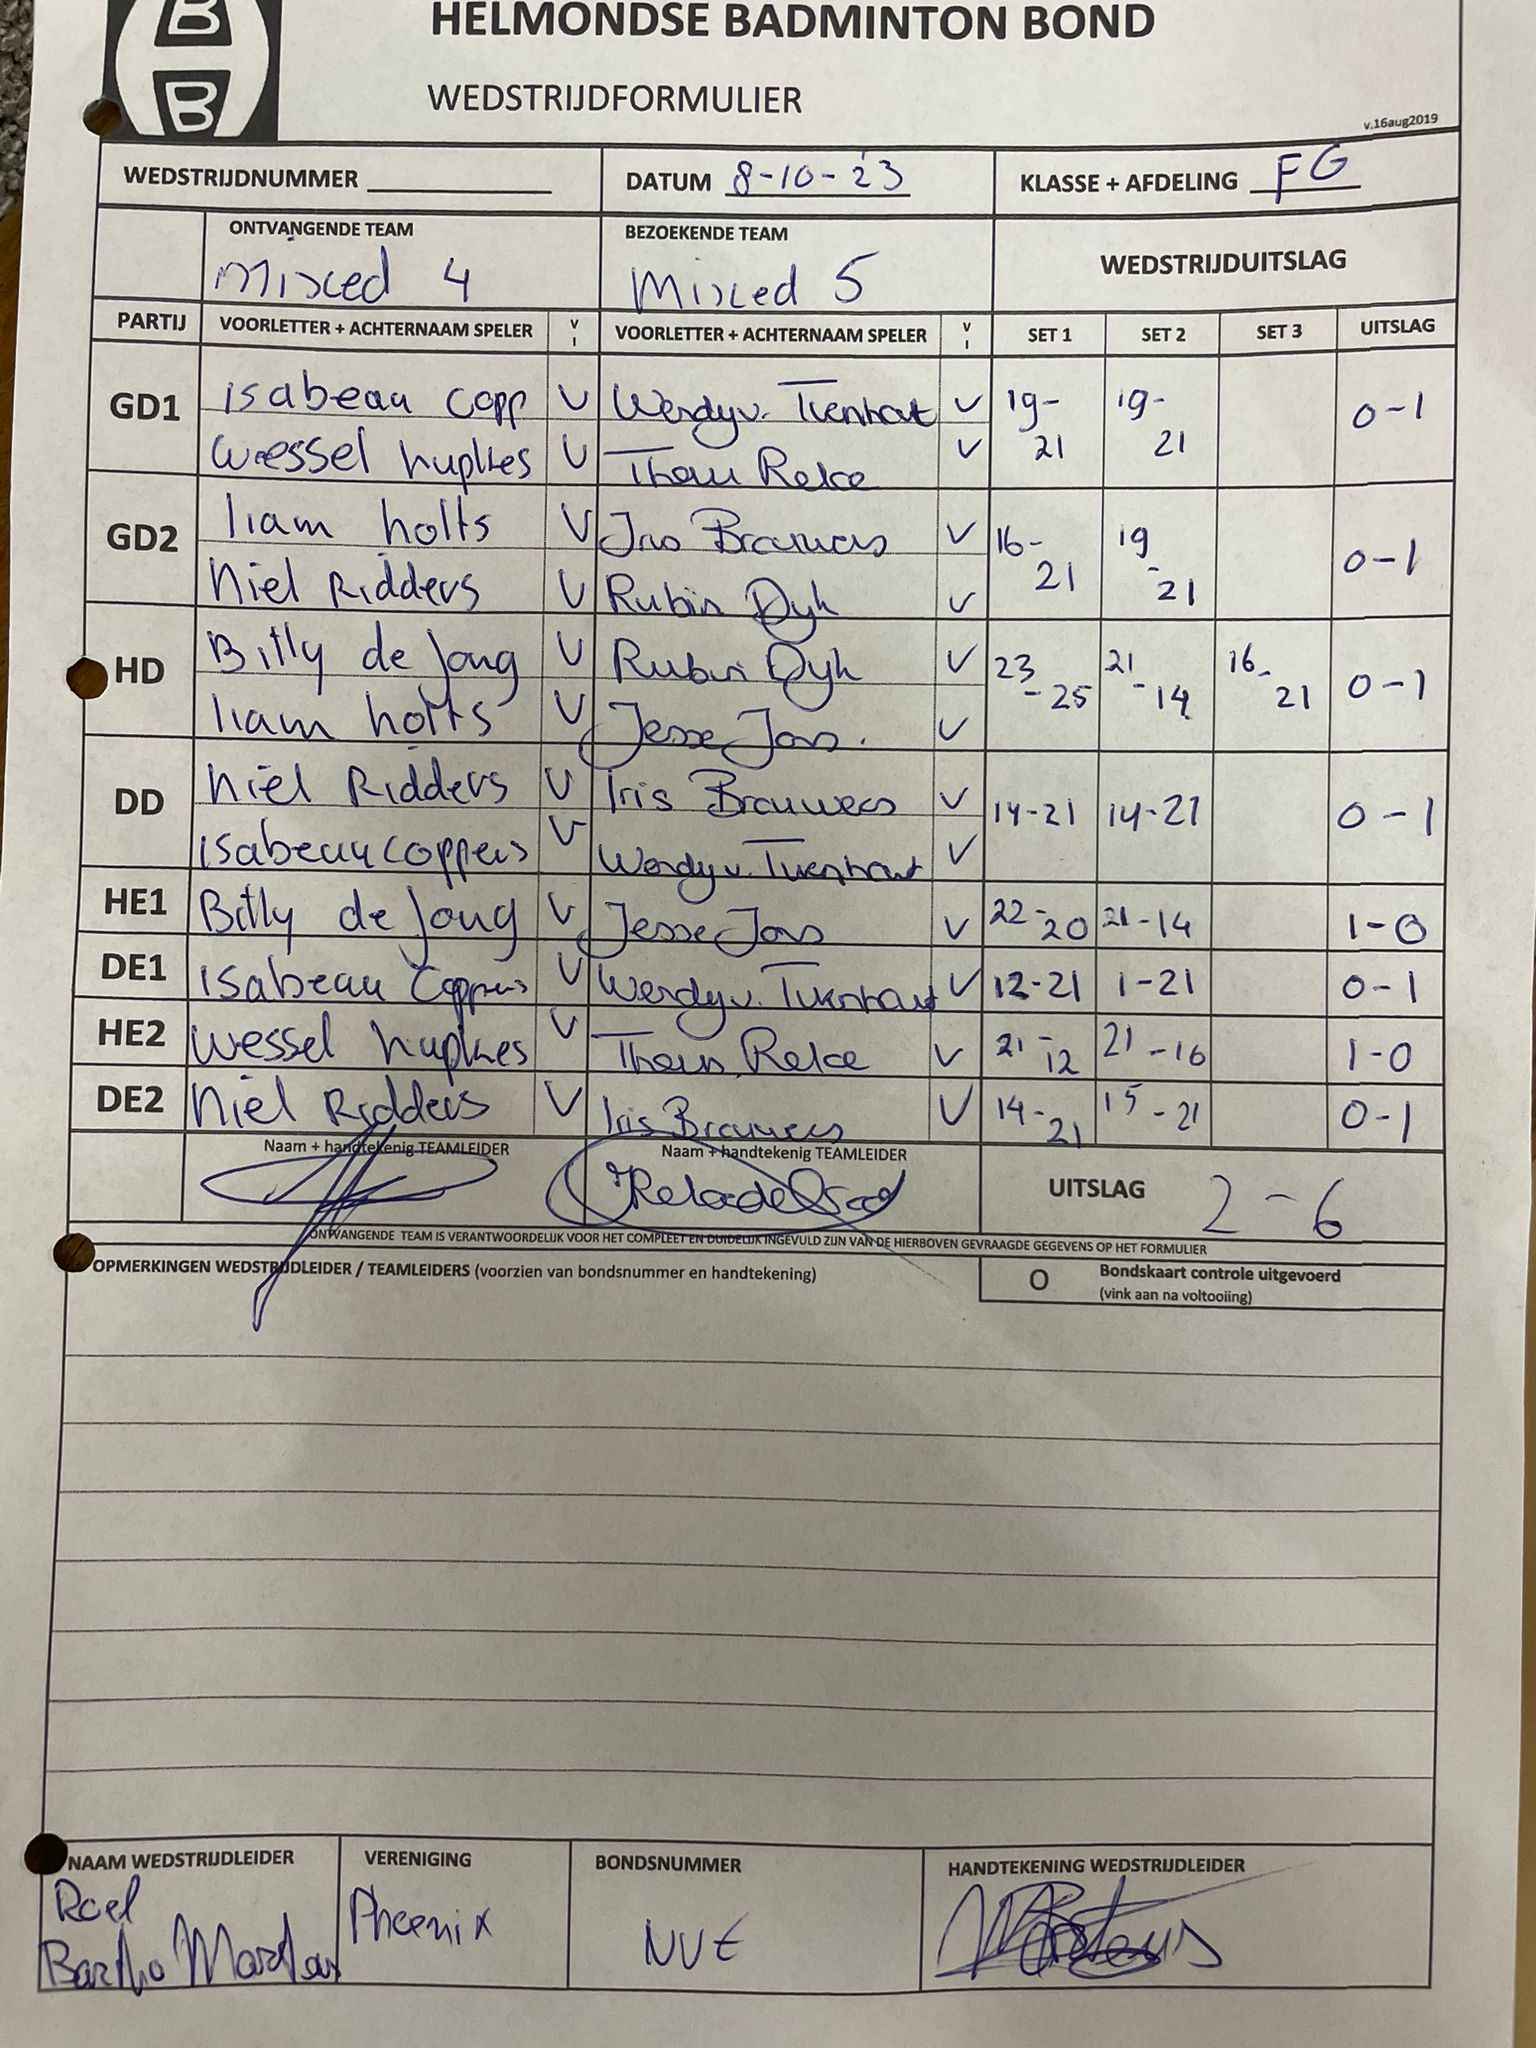 B
B
HELMONDSE BADMINTON BOND
WEDSTRIJDFORMULIER
v.16aug2019
WEDSTRIJDNUMMER DATUM 8-10-'23 KLASSE + AFDELING FG
ONTVANGENDE TEAM BEZOEKENDE TEAM WEDSTRIJDUITSLAG
Mixed 4 Mixed 5
PARTIJ VOORLETTER + ACHTERNAAM SPELER V I VOORLETTER + ACHTERNAAM SPELER V I SET 1 SET 2 SET 3 UITSLAG
GD1 isabeau copp V Wendy v. Turnhout V 19-21 19-21 0-1
wessel hupkes V V
GD2 liam holts V Iris Brouwers V 16-21 19-21 0-1
Niel Ridders V Rubin Dyk V
HD Billy de Jong V Rubin Dyk V 23-25 21-14 16-21 0-1
liam holts V Jesse V
DD Niel Ridders V Iris Brouwers V 14-21 14-21 0-1
isabeau coppens V Wendy v. Turnhout V
HE1 Billy de Jong V Jesse V 22-20 21-14 1-0
DE1 isabeau coppens V Wendy v. Turnhout V 12-21 1-21 0-1
HE2 wessel hupkes V V 21-12 21-16 1-0
DE2 Niel Ridders V Iris Brouwers V 14-21 15-21 0-1
Naam + handtekenig TEAMLEIDER Naam + handtekenig TEAMLEIDER
UITSLAG 2-6
ONTVANGENDE TEAM IS VERANTWOORDELIJK VOOR HET COMPLEET EN DUIDELIJK INGEVULD ZIJN VAN DE HIERBOVEN GEVRAAGDE GEGEVENS OP HET FORMULIER
OPMERKINGEN WEDSTRIJDLEIDER / TEAMLEIDERS (voorzien van bondsnummer en handtekening) O Bondskaart controle uitgevoerd
(vink aan na voltooiing)
NAAM WEDSTRIJDLEIDER VERENIGING BONDSNUMMER HANDTEKENING WEDSTRIJDLEIDER
Roel Phoenix